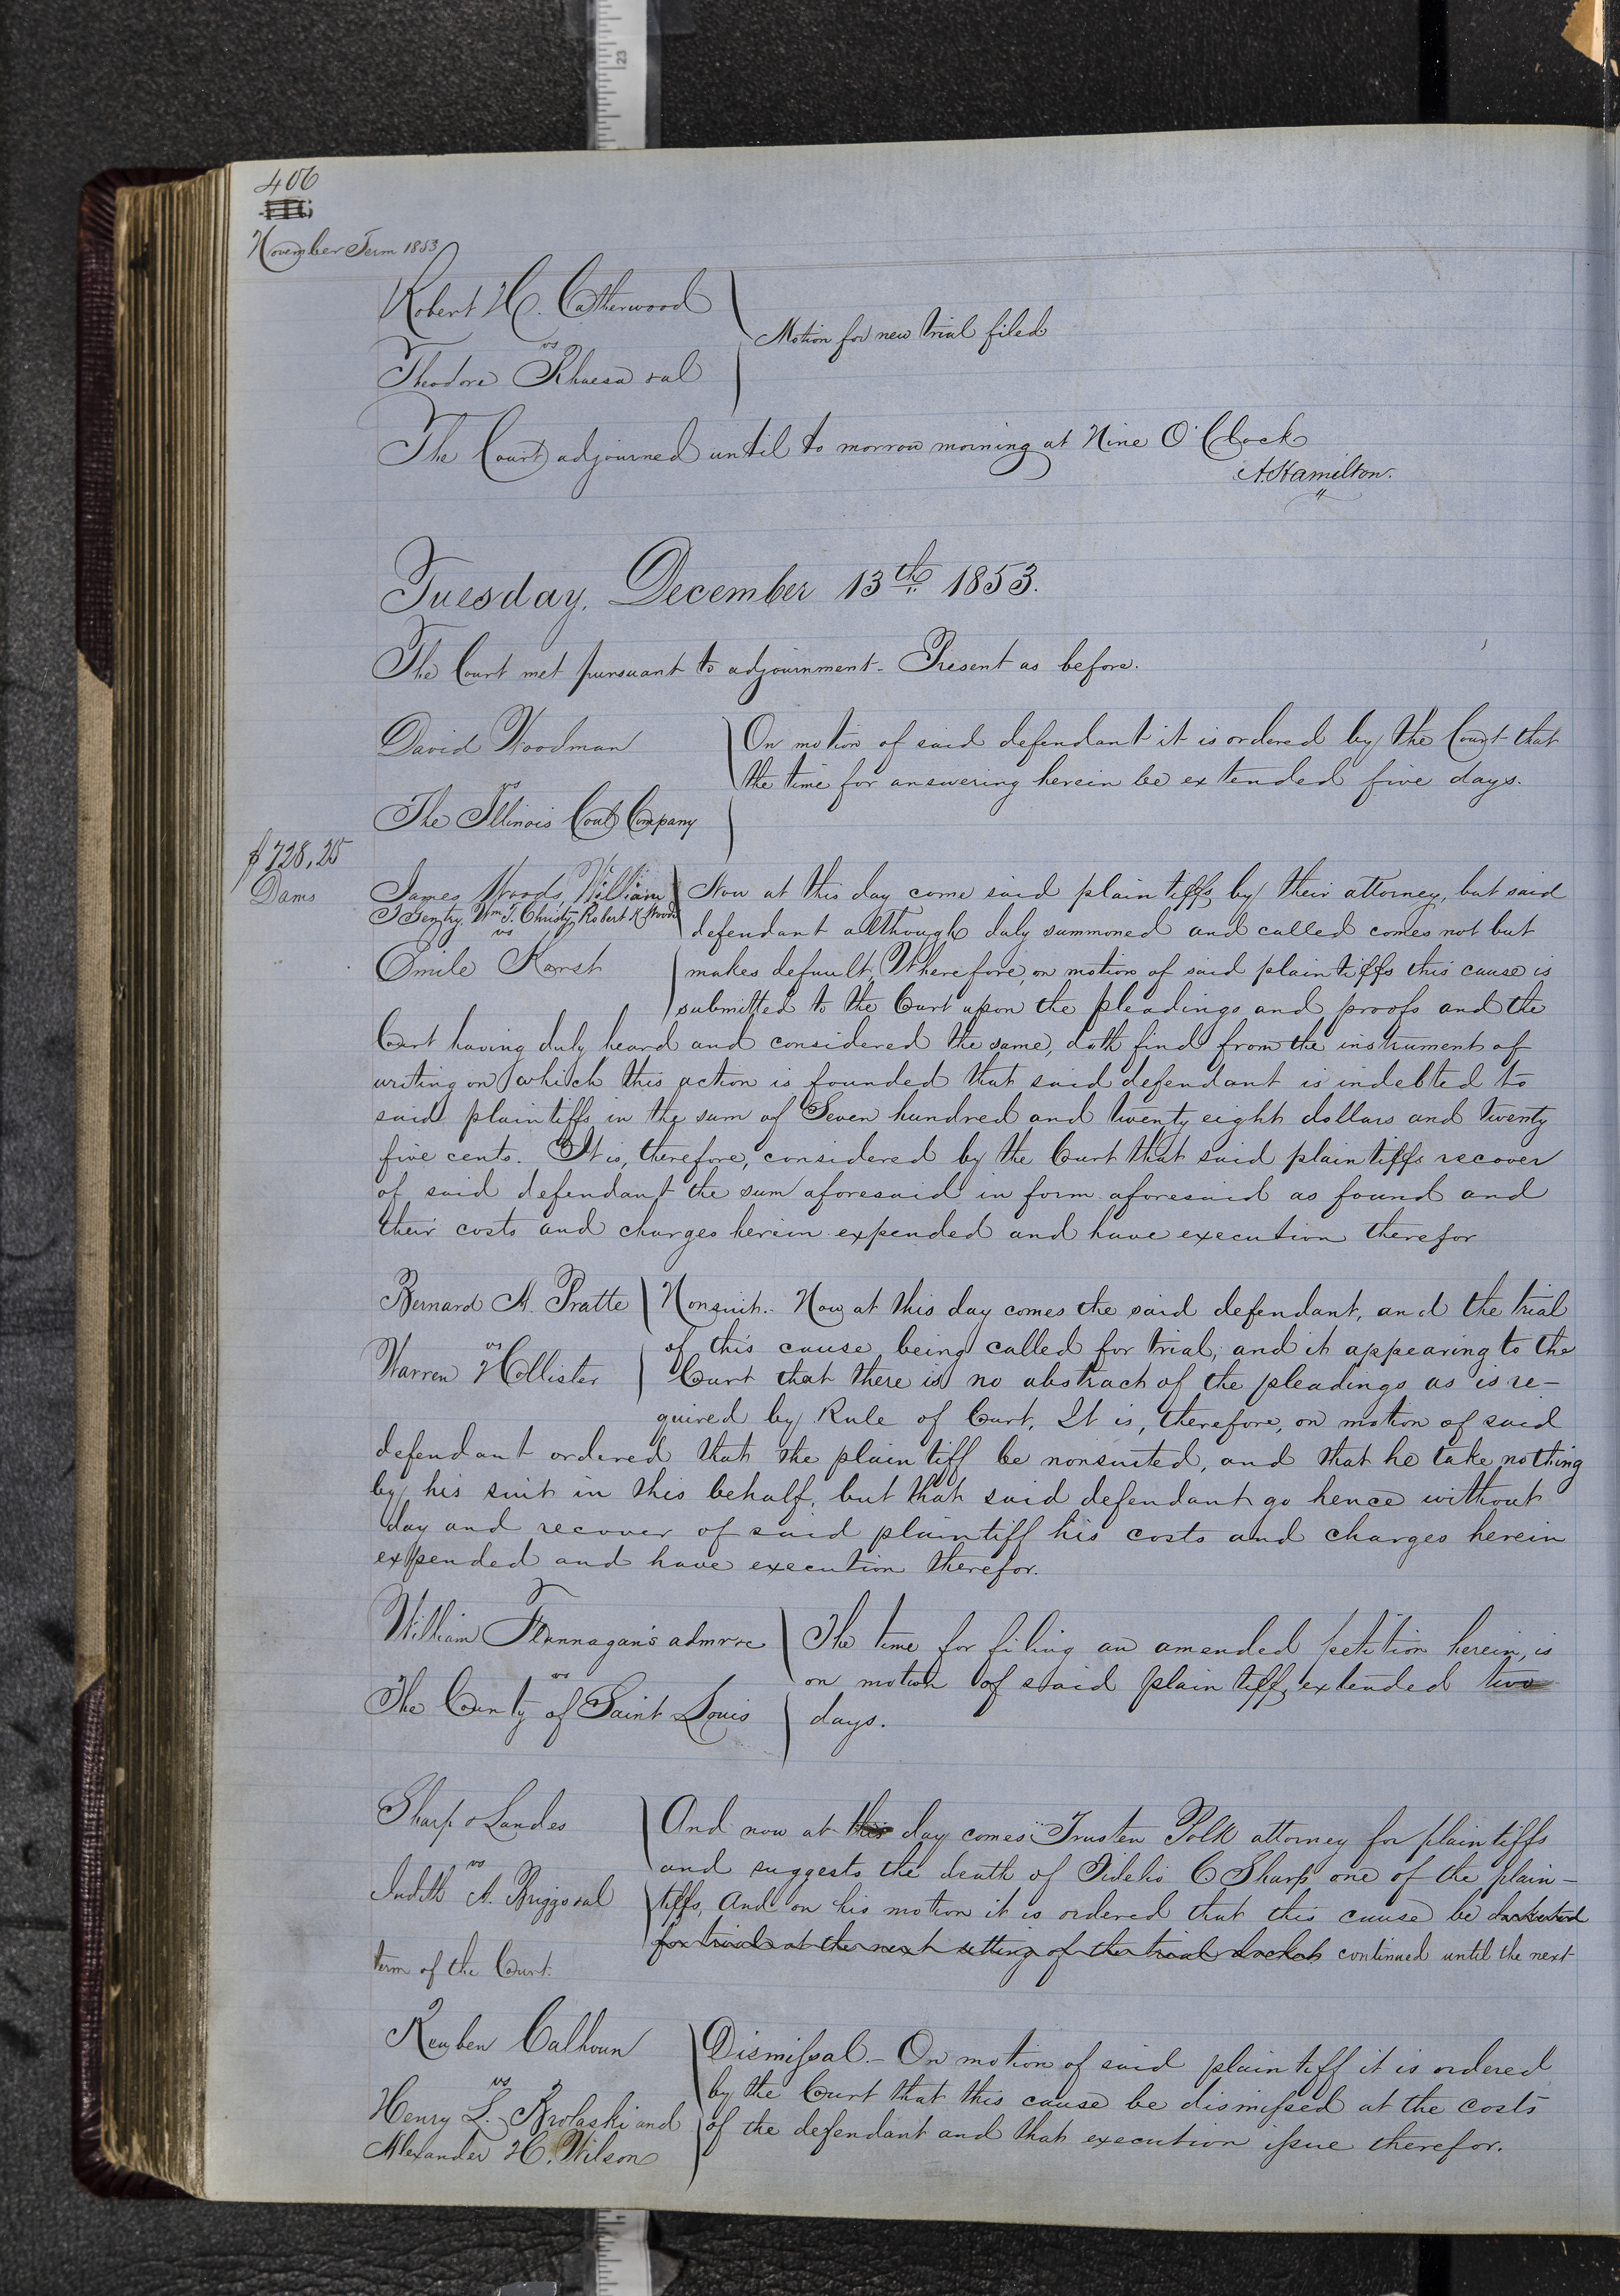 406
November Term 1853
Robert H. Catherwood
vs
Theodore Rhuesa &al
Motion for new trial filed
The Court adjourned until to morrow morning at Nine O'Clock
A. Hamilton.
Tuesday, December 13th 1853.
The Court met pursuant to adjournment - Present as before.
David Woodman
vs
The Illinois Coal Company
On motion of said defendant it is ordered by the Court that
the time for answering herein be extended five days.
$728.25
Dams
James Woods, William
T Gentry, Wm T. Christy, Robert K Woods
vs
Emile Karst
Now at this day come said plaintiffs by their attorney, but said
defendant although duly summoned and called comes not but
makes default, Wherefore, on motion of said plaintiffs this cause is
submitted to the Court upon the pleadings and proofs and the
Court having duly heard and considered the same, doth find from the instrument of
writing on which this action is founded that said defendant is indebted to
said plaintiffs in the sum of Seven hundred and twenty eight dollars and twenty
five cents. It is, therefore, considered by the Court that said plaintiffs recover
of said defendant the sum aforesaid in form aforesaid as found and
their costs and charges herein expended and have execution therefor
Bernard A. Pratte
vs
Warren Hollister
Nonsuit. - Now at this day comes the said defendant, and the trial
of this cause being called for trial, and it appearing to the
Court that there is no abstract of the pleadings as is re-
quired by Rule of Court, It is, therefore, on motion of said
defendant ordered that the plaintiff be nonsuited, and that he take nothing
by his suit in this behalf, but that said defendant go hence without
day and recover of said plaintiff his costs and charges herein
expended and have execution therefor.
William Flannagan's admr &c
vs
The County of Saint Louis
The time for filing an amended petition herein, is
on motion of said plaintiff, extended two
days.
Sharp & Landes
vs
Judith A. Briggs &al
And now at this day comes Trusten Polk attorney for plaintiffs
and suggests the death of Fidelio C Sharp one of the plain-
tiffs, And on his motion it is ordered that this cause be docketed
for trial at the next setting of the trial docket continued until the next
term of the Court.
Reuben Calhoun
vs
Henry L. Krolaski and
Alexander H. Wilson
Dismissal. - On motion of said plaintiff it is ordered
by the Court that this cause be dismissed at the costs
of the defendant and that execution issue therefor.
23